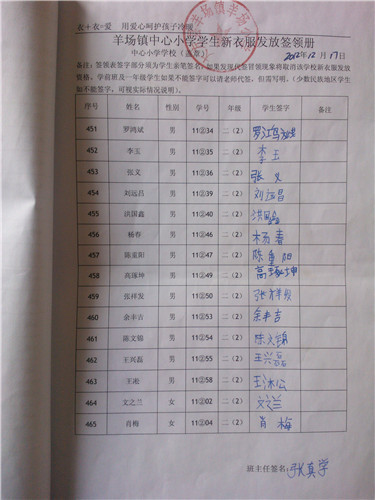 衣+衣=爱 用爱心呵护孩子冷暖
羊场镇中心小学学生新衣服发放签领册
中心小学学校(盖章) 2012年12月17日
备注:签领表签字部分须为学生亲笔签名;如果发现代签冒领现象将取消该学校新衣服发放
资格,学前班及一年级学生如果不能签字可以请老师代签,但需写明,(少数民族地区学生
如不能签字,可视实际情况说明)。
序号 姓名 性别 学号 年级 学生签字 备注
451 罗鸿斌 男 11②34 二(2) 罗鸿斌
452 李玉 男 11②35 二(2) 李玉
453 张义 男 11②36 二(2) 张义
454 刘远昌 男 11②39 二(2) 刘远昌
455 洪国鑫 男 11②40 二(2) 洪国鑫
456 杨春 男 11②46 二(2) 杨春
457 陈重阳 男 11②47 二(2) 陈重阳
458 高琢坤 男 11②49 二(2) 高琢坤
459 张祥发 男 11②50 二(2) 张祥发
460 余丰吉 男 11②53 二(2) 余丰吉
461 陈文锦 男 11②54 二(2) 陈文锦
462 王兴磊 男 11②55 二(2) 王兴磊
463 王淞 男 11②58 二(2) 王淞
464 文之兰 女 11②02 二(2) 文之兰
465 肖梅 女 11②04 二(2) 肖梅
班主任签名: 张真学